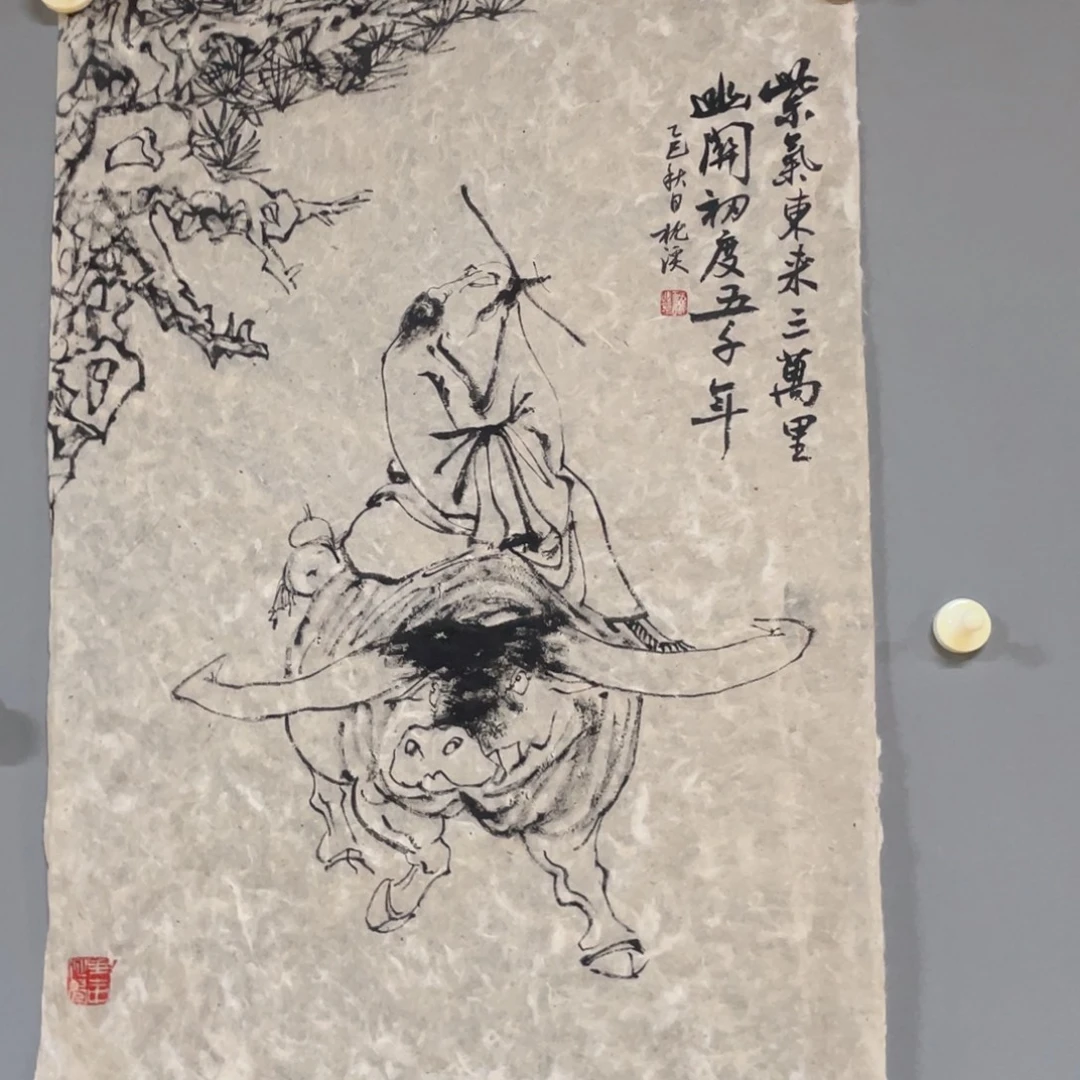 紫氣東来三萬里
幽関初度五千年
乙巳秋日
枕溪